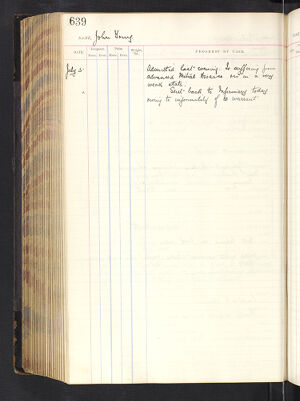 639
NAME, John Young
DATE. Temperature. Pulse. Weight, &c. PROGRESS OF CASE.
Morn. Even. Morn. Even.
July 5. Admitted last evening. Is suffering from
advanced Mitral Disease and is in a very
weak state.
" Sent back to Infirmary today
owing to informality of warrant.